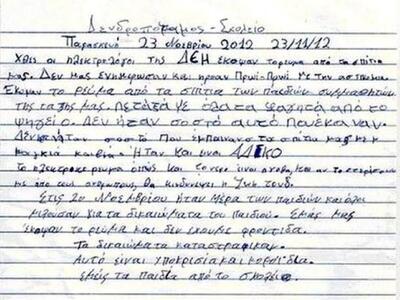 Δενδροπόταμος - Σχολείο
Παρασκευή 23 Νοεβρίου 2012 23/11/12
Χθες οι ηλεκτρολόγοι της ΔΕΗ έκοψαν το ρεμα από τα σπίτια
μας. Δεν μας ενημέρωσαν και ήρθαν πρωί-πρωί με την αστυνομια.
Έκοψαν το ρεύμα από τα σπίτια των παιδιών συμμαθητών
της τάξης μας. Πετάξαμε όλα τα φαγητά από το
ψηγείο. Δεν ήταν σοστό αυτό που έκαναν.
Δεν ήταν σοστό που έμπαιναν στα σπίτια μας
ήταν και είναι ΑΔΙΚΟ
Το ηλεκτρικο ρευμα όπως και το νερο είναι αγαθα και αν το στερίσουμε
από τους ανθρωπους, θα κινδυνεψει η ζωή τους.
Στις 20 Νοεμβρίου ήταν μέρα των παιδιών και όλοι
μιλούσαν για τα δικαιώματα του παιδιού. Εμάς μας
έκοψαν το ρεύμα και δεν έχουμε φροντίδα.
Τα δικαιώματα καταστράφηκαν.
Αυτό είναι υποκρισία και κοροϊδία.
εμείς τα παιδιά από το σχολείο.